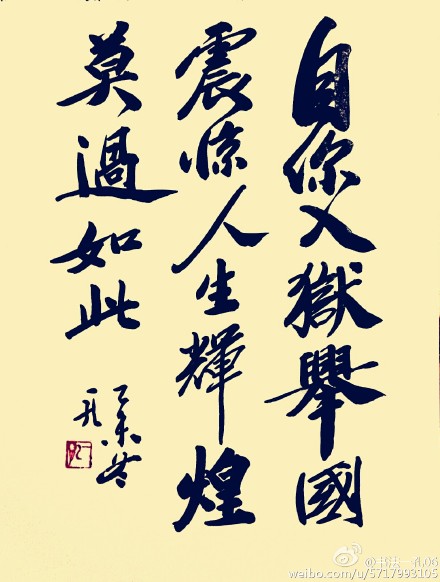 自你入獄舉國
震惊人生輝煌
莫過如此
乙未冬
一孔
@书法一孔06
weibo.com/u/5717993105